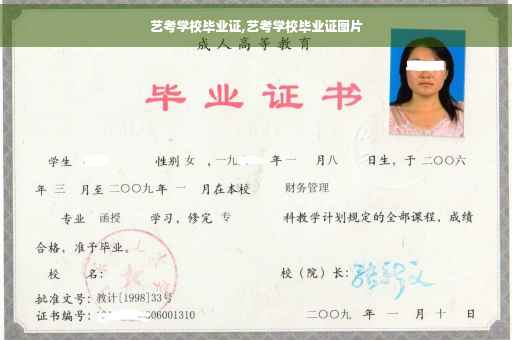 艺考学校毕业证,艺考学校毕业证图片
成人高等教育
毕业证书
学生 性别 女 ,一九 年 一 月 八 日生，于 二〇〇六
年 三 月至 二〇〇九 年 一 月在本校 财务管理
专业 函授 学习，修完 专 科教学计划规定的全部课程，成绩
合格，准予毕业。
校 名： 校（院）长：
批准文号：教计[1998]33号
证书编号： 06001310 二〇〇九 年 一 月 十 日